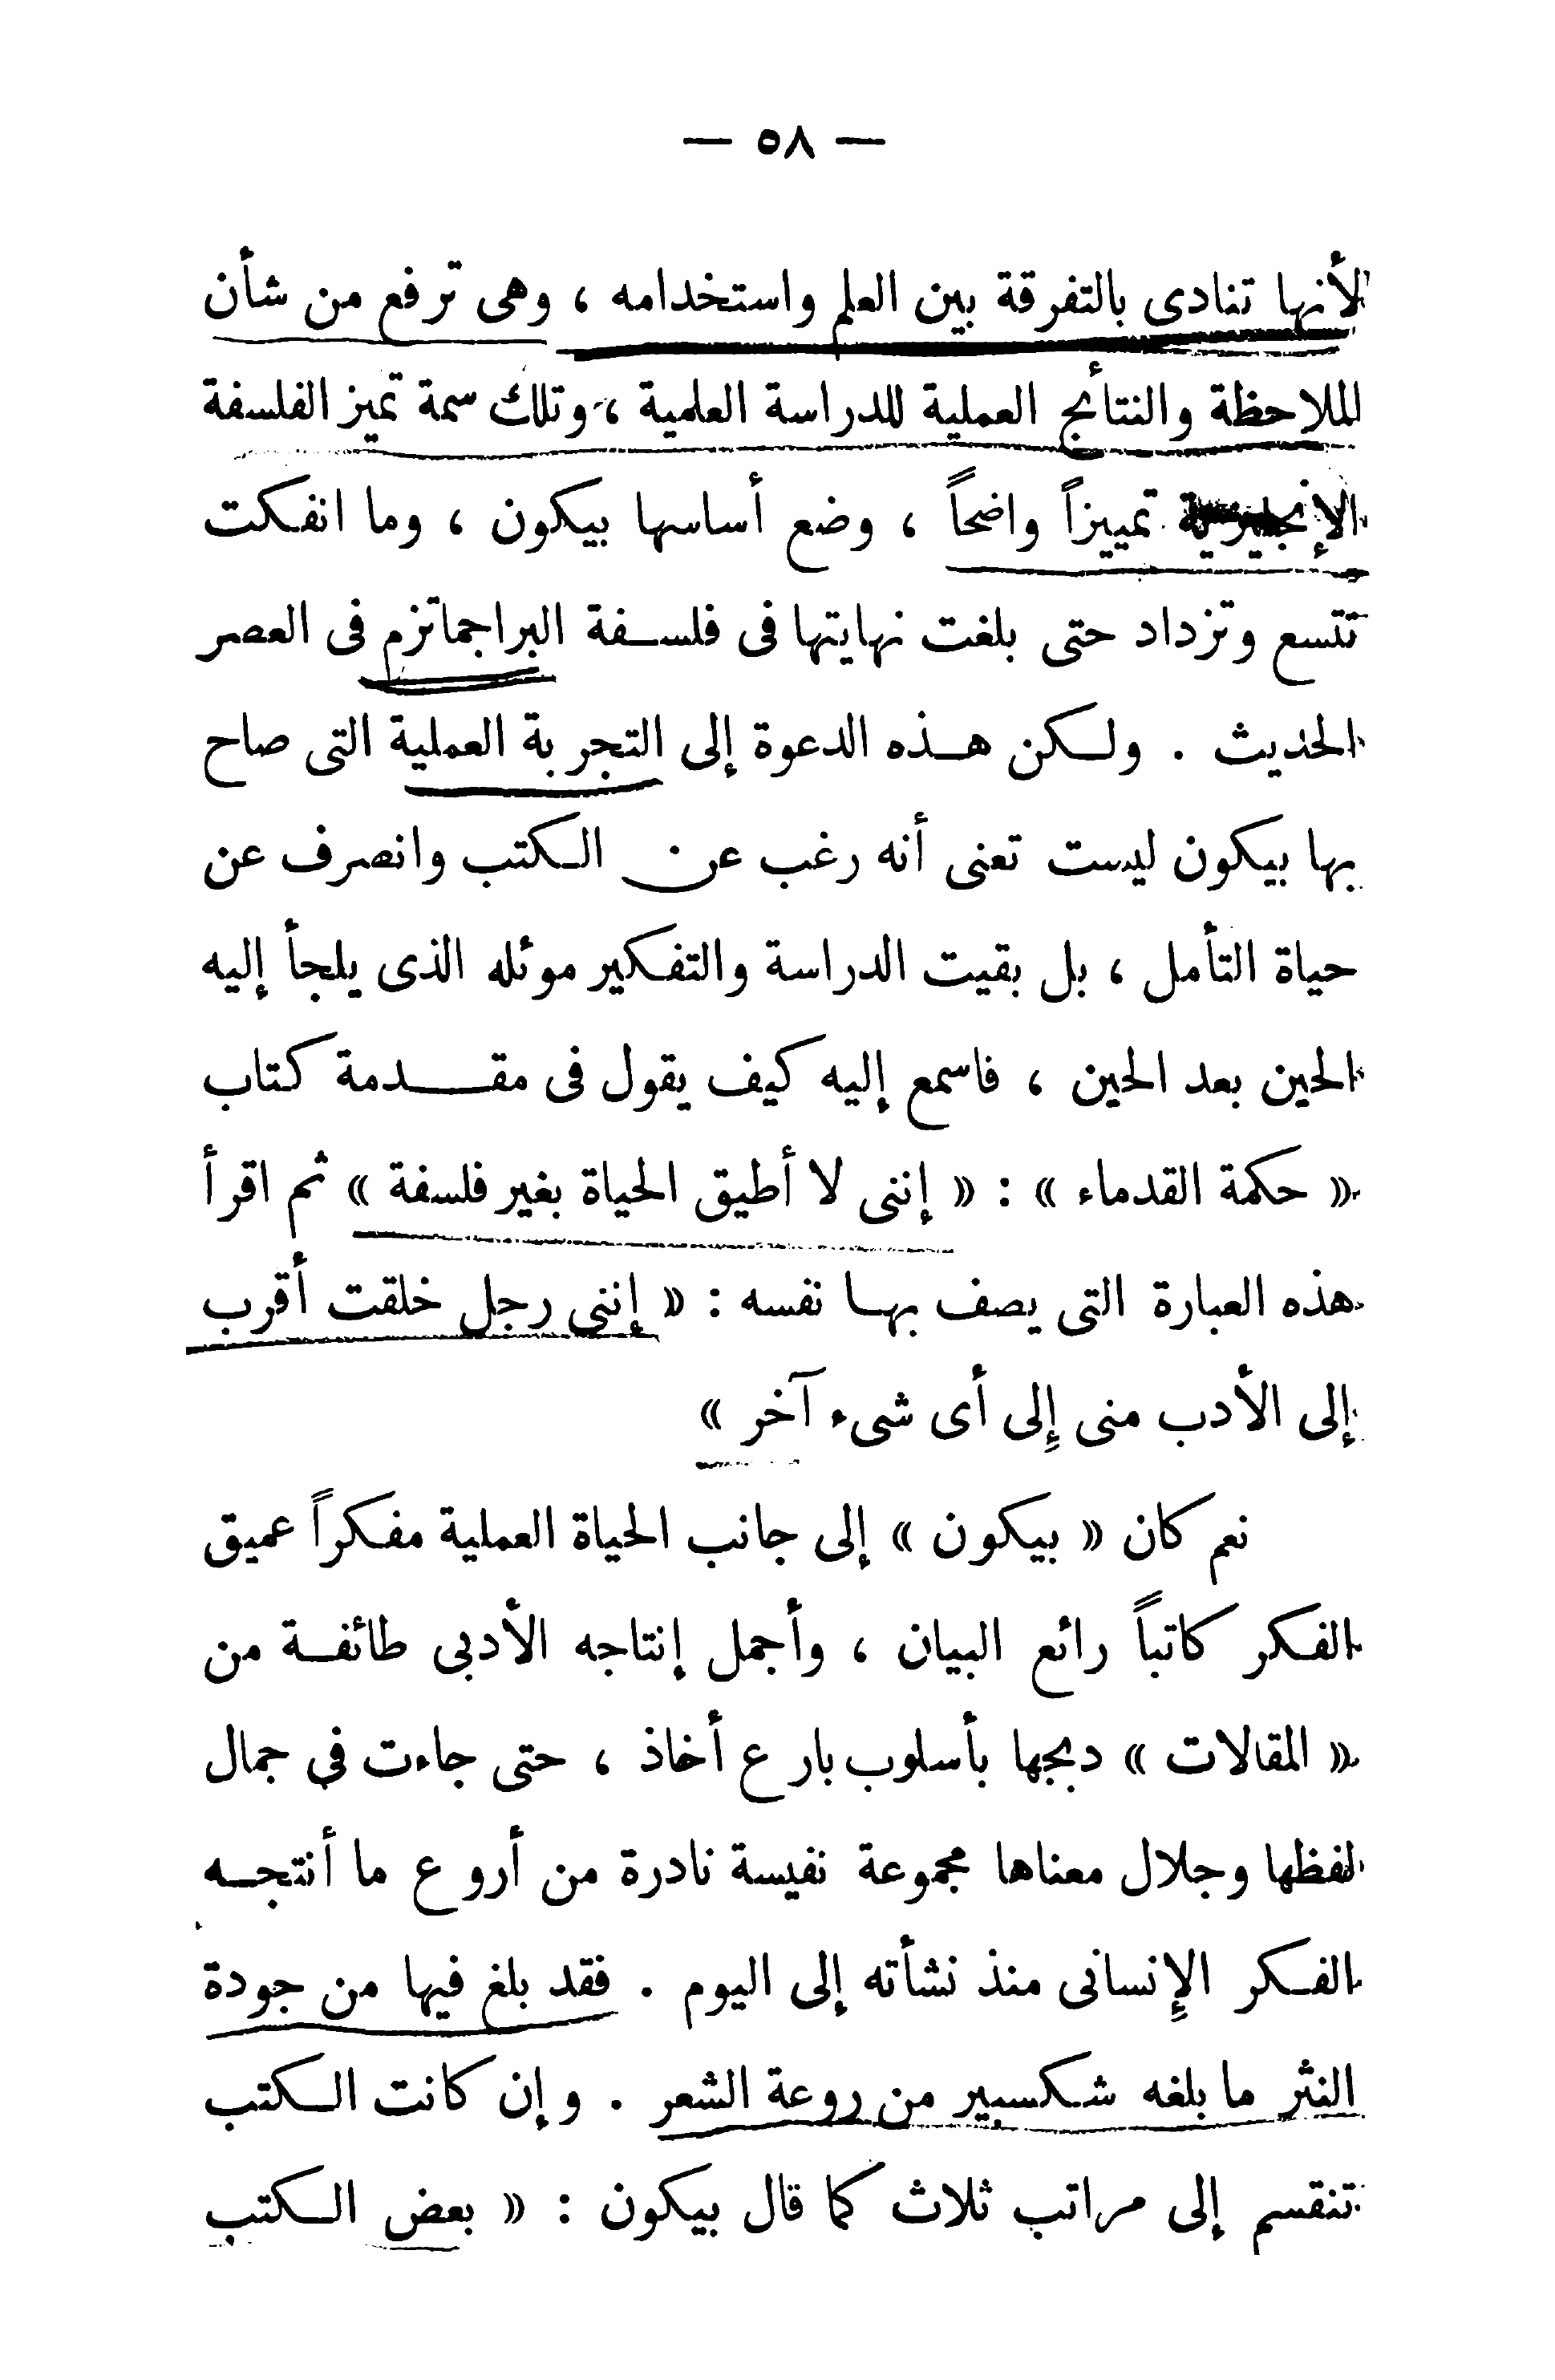 — ٥٨ —
لأنها تنادى بالتفرقة بين العلم واستخدامه ، وهى ترفع من شأن
الملاحظة والنتائج العملية للدراسة العلمية ، وتلك سمة تميز الفلسفة
الإنجليزية تمييزاً واضحاً ، وضع أساسها بيكون ، وما انفكت
تتسع وتزداد حتى بلغت نهايتها فى فلسفة البراجماتزم فى العصر
الحديث . ولكن هذه الدعوة إلى التجربة العملية التى صاح
بها بيكون ليست تعنى أنه رغب عن الكتب وانصرف عن
حياة التأمل ، بل بقيت الدراسة والتفكير موئله الذى يلجأ إليه
الحين بعد الحين ، فاسمع إليه كيف يقول فى مقدمة كتاب
« حكمة القدماء » : « إننى لا أطيق الحياة بغير فلسفة » ثم اقرأ
هذه العبارة التى يصف بها نفسه : « إننى رجل خلقت أقرب
إلى الأدب منى إلى أى شىء آخر »
نعم كان « بيكون » إلى جانب الحياة العملية مفكراً عميق
الفكر كاتباً رائع البيان ، وأجمل إنتاجه الأدبى طائفة من
« المقالات » دبجها بأسلوب بارع أخاذ ، حتى جاءت فى جمال
لفظها وجلال معناها مجموعة نفيسة نادرة من أروع ما أنتجه
الفكر الإنسانى منذ نشأته إلى اليوم . فقد بلغ فيها من جودة
النثر ما بلغه شكسبير من روعة الشعر . وإن كانت الكتب
تنقسم إلى مراتب ثلاث كما قال بيكون : « بعض الكتب